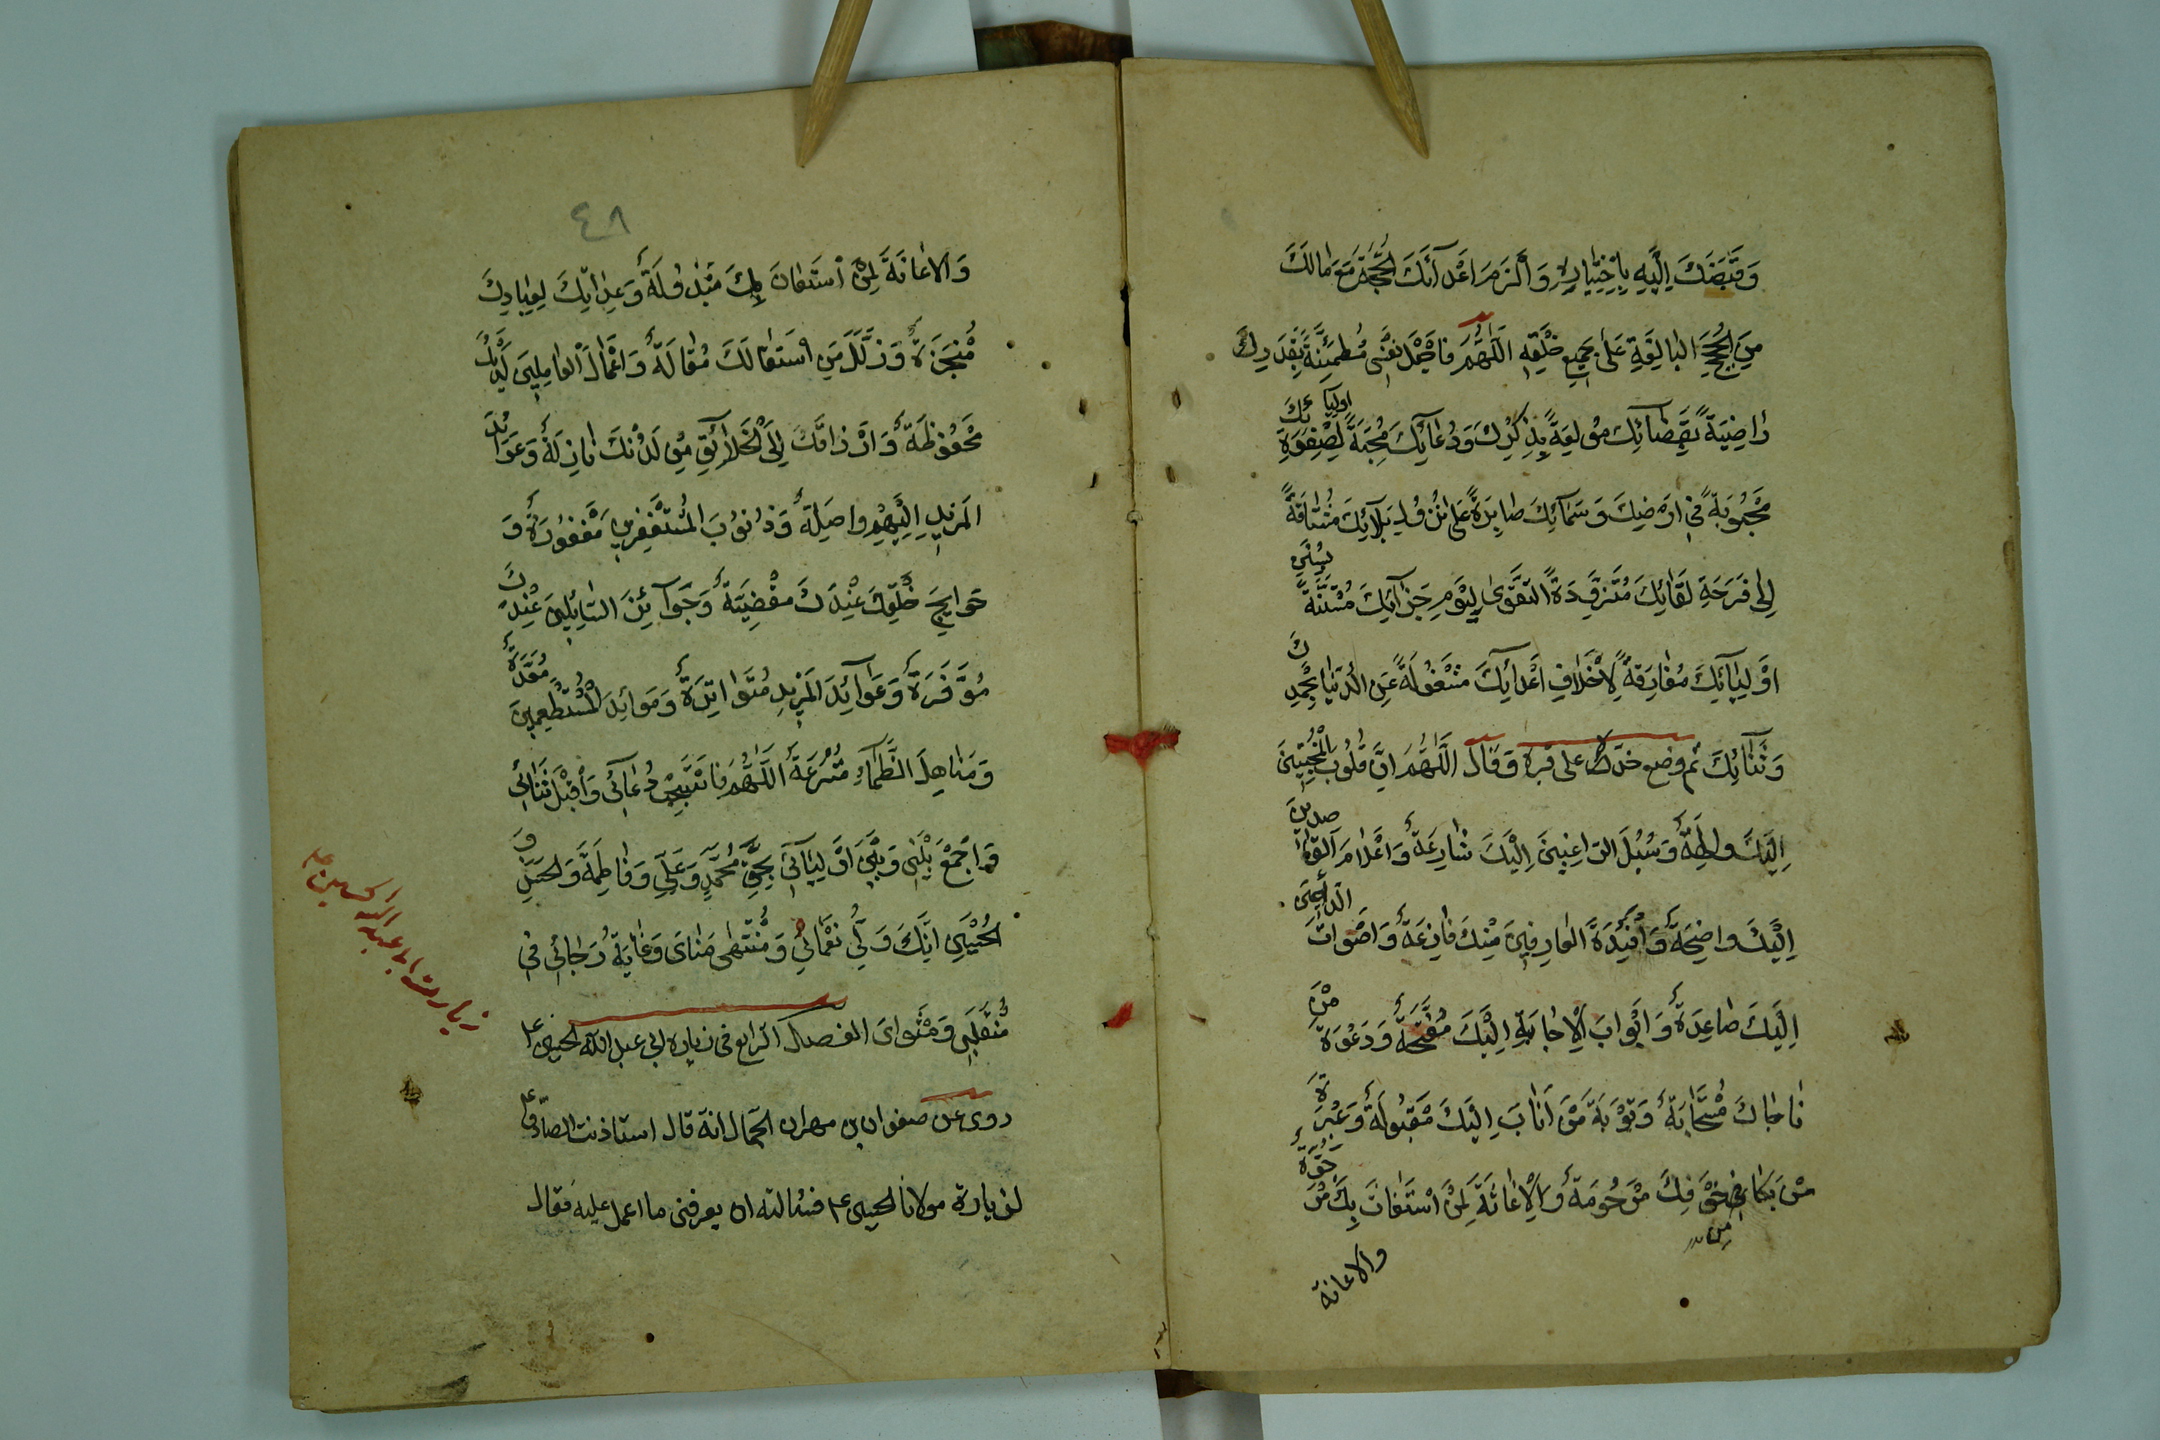 وَقَبَضَكَ اِلَيْهِ بِاِخْتِيَارِهِ وَاَلْزَمَ اَعْدَآئَكَ الْحُجَّةَ مَعَ مَا لَكَ
مِنَ الْحُجَجِ الْبَالِغَةِ عَلَى جَمِيعِ خَلْقِهِ اَللّٰهُمَّ فَاجْعَلْ نَفْسِى مُطْمَئِنَّةً بِقَدَرِكَ
رَاضِيَةً بِقَضَائِكَ مُولِعَةً بِذِكْرِكَ وَدُعَائِكَ مُحِبَّةً لِصَفْوَةِ اوليائك
مَحْبُوبَةً فِى اَرْضِكَ وَسَمَآئِكَ صَابِرَةً عَلَى نُزُولِ بَلَائِكَ مُشْتَاقَةً
اِلَى فَرْحَةِ لِقَائِكَ مُتَزَوِّدَةً التَّقْوَى لِيَوْمِ جَزَآئِكَ مُسْتَنَّةً بِسُنَنِ
اَوْلِيَائِكَ مُفَارِقَةً لِاَخْلَاقِ اَعْدَآئِكَ مَشْغُولَةً عَنِ الدُّنْيَا بِحَمْدِكَ
وَثَنَائِكَ ثم وضع خده على قبره وقال اَللّٰهُمَّ اِنَّ قُلُوبَ الْمُخْبِتِينَ
اِلَيْكَ وَالِهَةٌ وَسُبُلَ الرَّاغِبِينَ اِلَيْكَ شَارِعَةٌ وَاَعْلَامَ الْقَاصِدِينَ
اِلَيْكَ وَاضِحَةٌ وَاَفْئِدَةَ الْعَارِفِينَ مِنْكَ فَازِعَةٌ وَاَصْوَاتَ الدَّاعِينَ
اِلَيْكَ صَاعِدَةٌ وَاَبْوَابَ الْاِجَابَةِ اِلَيْكَ مُفَتَّحَةٌ وَدَعْوَةَ مَنْ
نَاجَاكَ مُسْتَجَابَةٌ وَتَوْبَةَ مَنْ اَنَابَ اِلَيْكَ مَقْبُولَةٌ وَعَبْرَةَ
مَنْ بَكَا مِنْ خَوْفِكَ مَرْحُومَةٌ وَالْاِغَاثَةَ لِمَنْ اسْتَغَاثَ بِكَ
والاعانة
٤٨
وَالْاِعَانَةَ لِمَنْ اسْتَعَانَ بِكَ مَبْذُولَةٌ وَعِدَاتِكَ لِعِبَادِكَ
مُنْجَزَةٌ وَزَلَلَ مَنِ اسْتَقَالَكَ مُقَالَةٌ وَاَعْمَالَ الْعَامِلِينَ لَدَيْكَ
مَحْفُوظَةٌ وَاَرْزَاقَكَ اِلَى الْخَلَائِقِ مِنْ لَدُنْكَ نَازِلَةٌ وَعَوَائِدَ
الْمَزِيدِ اِلَيْهِمْ وَاصِلَةٌ وَذُنُوبَ الْمُسْتَغْفِرِينَ مَغْفُورَةٌ وَ
حَوَايِجَ خَلْقِكَ عِنْدَكَ مَقْضِيَّةٌ وَجَوَآئِزَ السَّائِلِينَ عِنْدَكَ
مُوَفَّرَةٌ وَعَوَآئِدَ الْمَزِيدِ مُتَوَاتِرَةٌ وَمَوَائِدَ الْمُسْتَطْعِمِينَ مُعَدَّةٌ
وَمَنَاهِلَ الظِّمَآءِ مُتْرَعَةٌ اَللّٰهُمَّ فَاسْتَجِبْ دُعَآئِى وَاقْبَلْ ثَنَائِى
وَاجْمَعْ بَيْنِى وَبَيْنَ اَوْلِيَآئِى بِحَقِّ مُحَمَّدٍ وَعَلِىٍّ وَفَاطِمَةَ وَالْحَسَنِ وَ
الْحُسَيْنِ اِنَّكَ وَلِىُّ نَعْمَائِى وَمُنْتَهَى مُنَاىَ وَغَايَةُ رَجَائِى فِى
مُنْقَلَبِى وَمَثْوَاىَ الفصل الرابع فى زيارة ابى عبد الله الحسين ع
روى عن صفوان بن مهران الجمال انه قال استاذنت الصادق ع
لزيارة مولانا الحسين ع فسئالته ان يعرفنى ما اعمل عليه فقال
زيارت ابا عبد الله الحسين ع